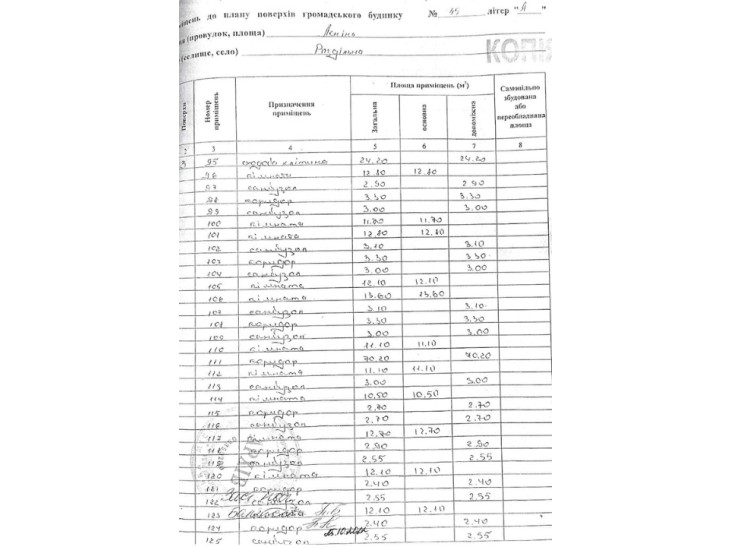 міщень до плану поверхів громадського будинку № 45 літер "А"
(провулок, площа) Леніна
(селище, село) Роздільна
КОПІЯ
Поверхи Номер приміщень Призначення приміщень Площа приміщень (м²) Самовільно збудована або переобладнана площа
Загальна основна допоміжна
2 3 4 5 6 7 8
95 сходова клітина 24.20 24.20
96 кімната 12.80 12.80
97 санвузол 2.90 2.90
98 коридор 3.30 3.30
99 санвузол 3.00 3.00
100 кімната 11.70 11.70
101 кімната 12.80 12.80
102 санвузол 3.10 3.10
103 коридор 3.30 3.30
104 санвузол 3.00 3.00
105 кімната 12.10 12.10
106 кімната 13.60 13.60
107 санвузол 3.10 3.10
108 коридор 3.30 3.30
109 санвузол 3.00 3.00
110 кімната 11.10 11.10
111 коридор 70.20 70.20
112 кімната 11.10 11.10
113 санвузол 3.00 3.00
114 кімната 10.50 10.50
115 коридор 2.70 2.70
116 санвузол 2.70 2.70
117 кімната 12.70 12.70
118 коридор 2.90 2.90
119 санвузол 2.55 2.55
120 кімната 12.10 12.10
121 коридор 2.40 2.40
122 санвузол 2.55 2.55
123 12.10 12.10
124 коридор 2.40 2.40
125 санвузол 2.55 2.55